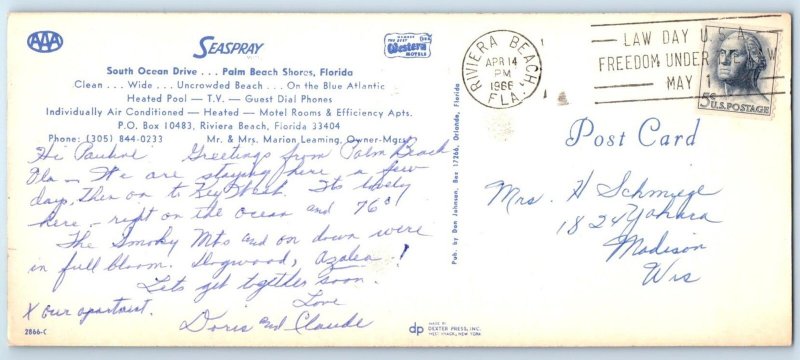 AAA
SEASPRAY
MEMBER
THE BEST
Western
MOTELS
South Ocean Drive . . . Palm Beach Shores, Florida
Clean . . . Wide . . . Uncrowded Beach . . . On the Blue Atlantic
Heated Pool — T.V. — Guest Dial Phones
Individually Air Conditioned — Heated — Motel Rooms & Efficiency Apts.
P.O. Box 10483, Riviera Beach, Florida 33404
Phone: (305) 844-0233 Mr. & Mrs. Marion Leaming, Owner-Mgrs.
Hi Pauline Greetings from Palm Beach
Fla — We are staying here a few
days, then on to Key West. Its lovely
here — right on the ocean and 76°!
The Smoky Mts and on down were
in full bloom. Dogwood, Azalea!
Lets get together soon.
Love
Doris and Claude
X our apartment.
2866-C
Pub. by Don Johnson, Box 17266, Orlando, Florida
dp MADE BY
DEXTER PRESS, INC.
WEST NYACK, NEW YORK
RIVIERA BEACH,
APR 14
PM
1966
FLA.
LAW DAY U.S.A.
FREEDOM UNDER LAW
MAY 1
5¢ U.S. POSTAGE
Post Card
Mrs. H Schmiege
1824 Yahara
Madison
Wis